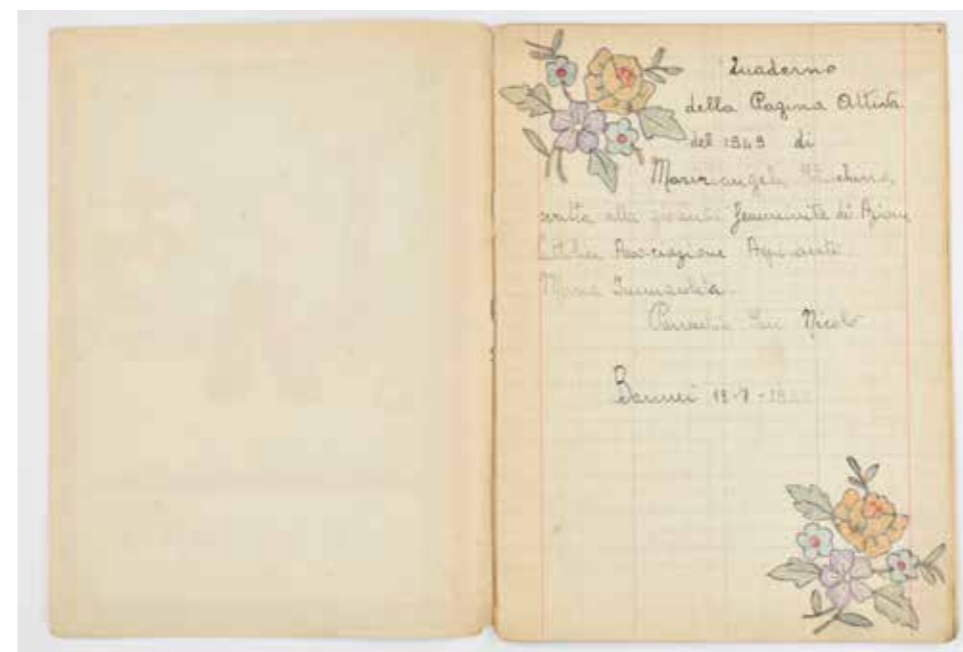 Quaderno
della Pagina Attiva
del 1949 di
Mariangela
scritta alla gioventù femminile di Azione
Cattolica Associazione Aspiranti
Maria Immacolata
Parrocchia San Nicolò
Bannei 19-7-19